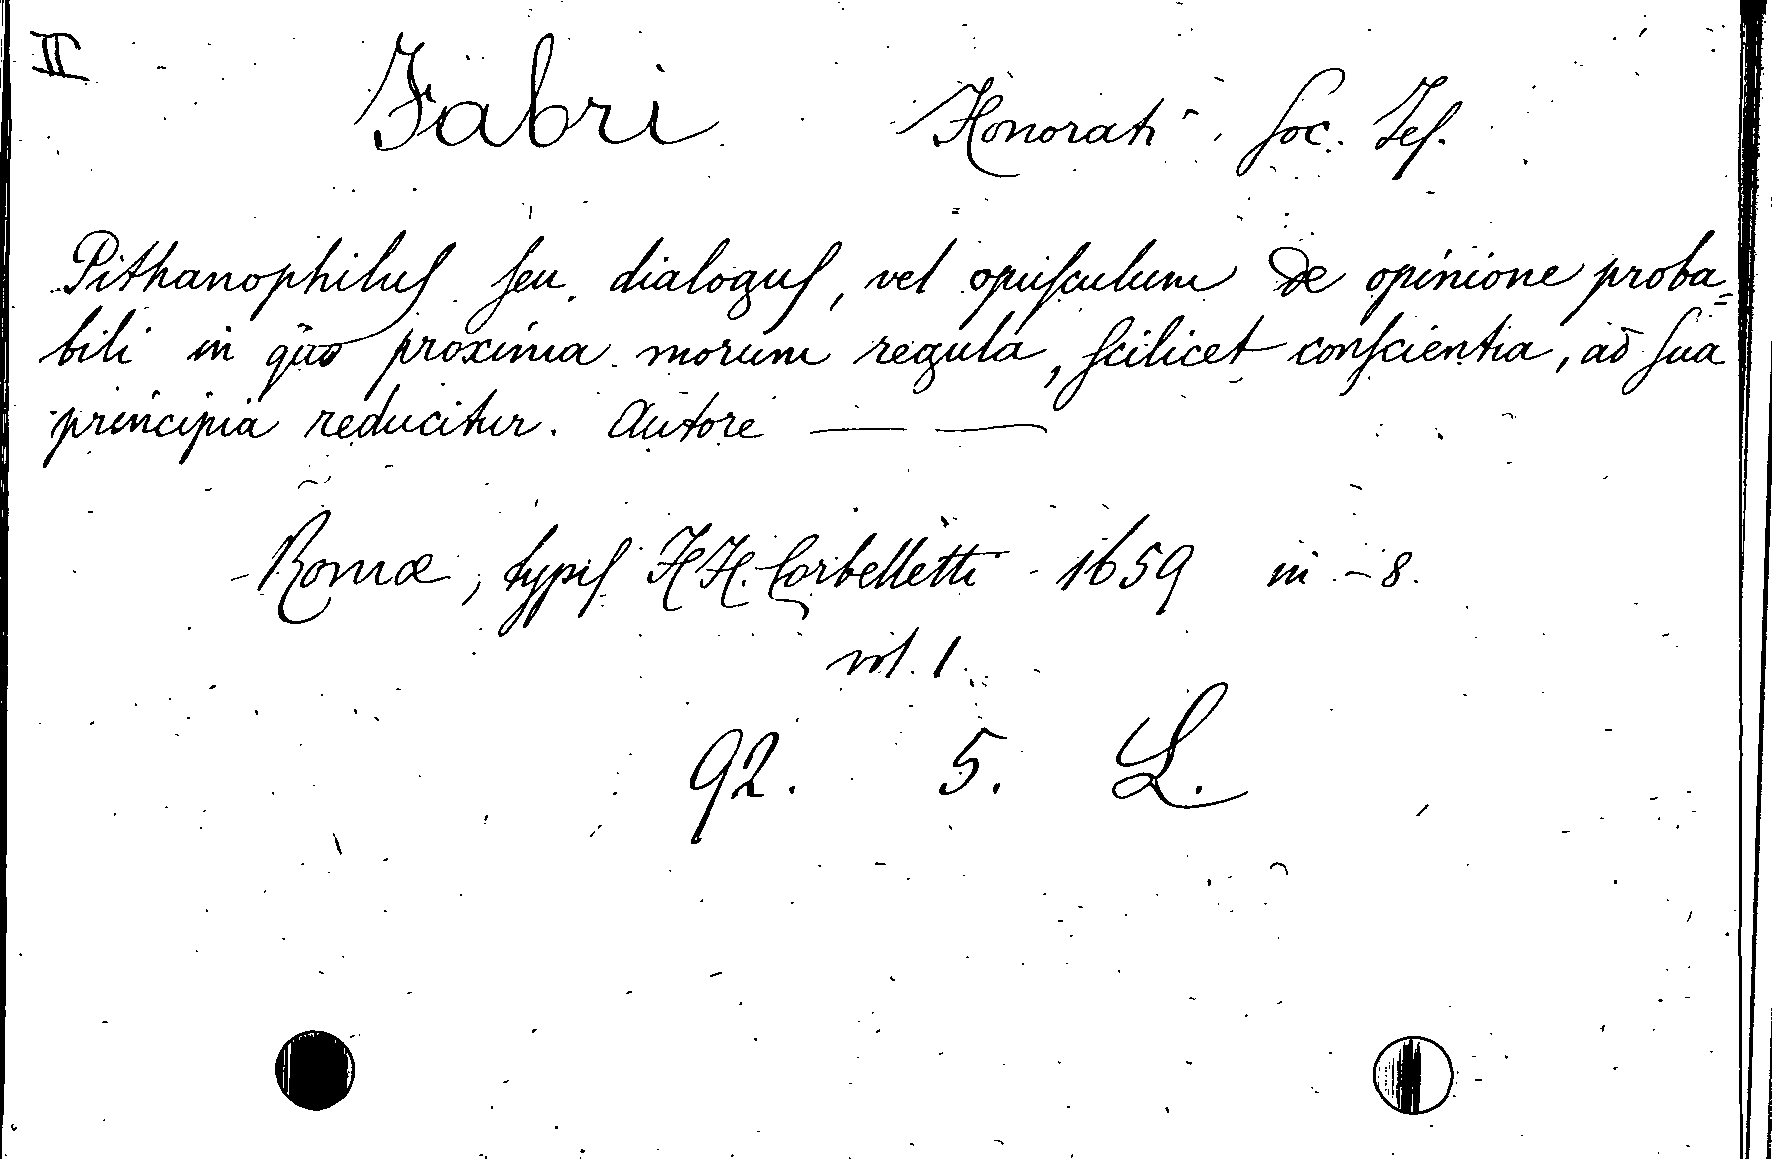 II
Fabri Honorati, Soc. Jes.
Pithanophilus seu dialogus, vel opusculum de opinione proba=
bili in quo proxima morum regula, scilicet conscientia, ad sua
principia reducitur. Autore — —
Romæ, typis HH. Corbelletti 1659 in-8.
vol. 1.
92. 5. L.